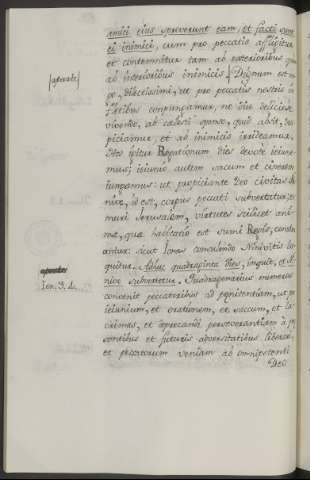 amici ejus spreverunt eam, et facti sunt
ei inimici, cum pro peccatis affligitur
et contemnitur tam ab exterioribus quam
ab interioribus inimicis. Dignum est
dilectissimi, ut pro peccatis nostris in
fletibus conpungamur, ne sine deliciis
vivendo, ab cælesti sponso, quod absit, des-
piciamur, et ab inimicis irrideamur.
Hos igitur Rogationum dies devote jejune-
mus; jejunio autem saccum et cinerem
jungamus: ut propiciante Deo civitas Ni-
nive, id est, corpus peccati subvertatur, et
muri Jerusalem, virtutes scilicet ani-
mæ, quæ habitatio est summi Regis, constru-
antur: sicut Jonas comminando Ninivitis lo-
quitur. Adhuc quadraginta dies, inquit, et Ni-
nive subvertetur. Quadragenarius numerus
convenit peccatoribus ad pœnitentiam, ut per
jejunium, et orationem, et saccum, et la-
crimas, et deprecandi perseverantiam à præ-
sentibus et futuris adversitatibus liberari,
et peccatorum veniam ab omnipotenti
Deo
Jon. 3. 4.